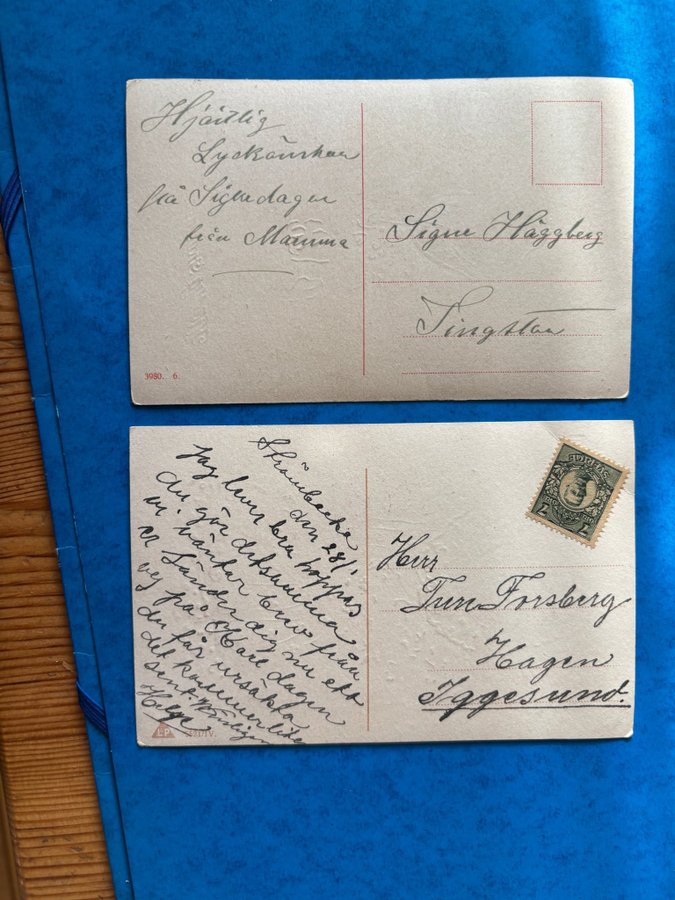 Hjärtlig
Lyckönskan
på Signedagen
från Mamma
Signe Häggberg
Tingstan
3980. 6.
Strömbacka
den 28/1
Jag lever bra hoppas
du gör detsamma
vi väntar brev från
er Sänder dig nu ett
på Karl dagen
du får ursäkta
det kommer lite
sent Vänligen
Helge
Herr
Ture Forsberg
Hagen
Iggesund.
SVERIGE
7
7
L&P